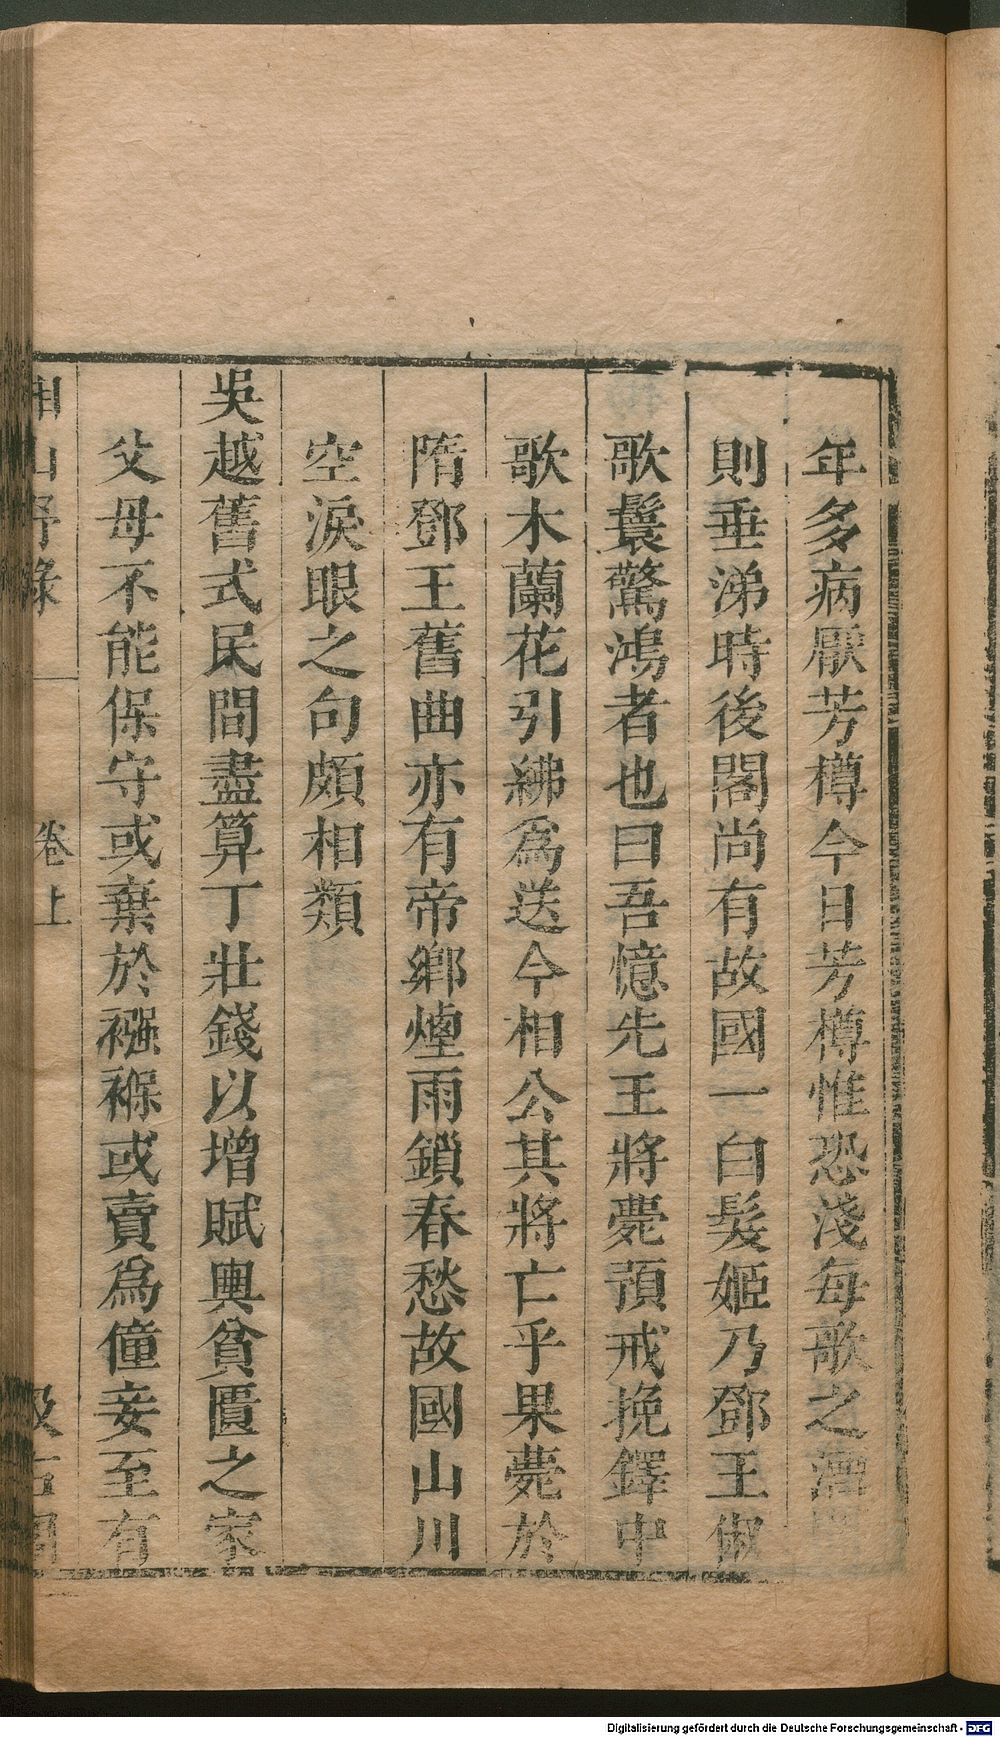 年多病厭芳樽今日芳樽惟恐淺每歌之酒
則垂涕時後閣尚有故國一白髮姬乃鄧王俶
歌鬟驚鴻者也曰吾憶先王將薨預戒挽鐸中
歌木蘭花引紼爲送今相公其將亡乎果薨於
隋鄧王舊曲亦有帝鄉煙雨鎖春愁故國山川
空淚眼之句頗相類
吳越舊式民間盡算丁壯錢以增賦輿貧匱之家
父母不能保守或棄於襁褓或賣爲僮妾至有
湘山野錄 卷上 汲古閣
Digitalisierung gefördert durch die Deutsche Forschungsgemeinschaft - DFG